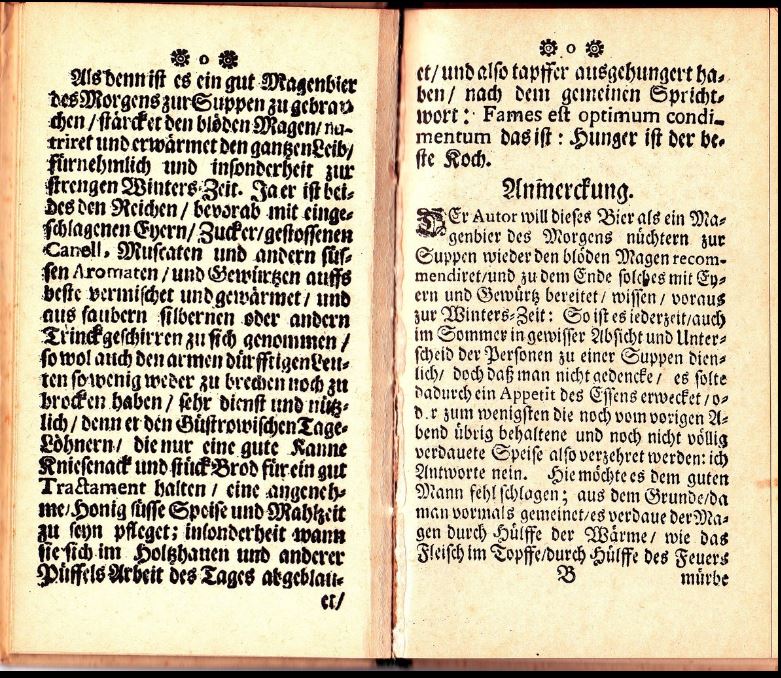 ❁ o ❁
Als denn ist es ein gut Magenbier
des Morgens zur Suppen zu gebrau-
chen / stärcket den blöden Magen / nu-
triret und erwärmet den gantzen Leib/
fürnehmlich und insonderheit zur
strengen Winters-Zeit. Ja er ist bei-
des den Reichen / bevorab mit einge-
schlagenen Eyern/ Zucker/gestossenen
Canell, Muscaten und andern süs-
sen Aromaten / und Gewürtzen auffs
beste vermischet und gewärmet / und
aus saubern silbernen oder andern
Trinckgeschirren zu sich genommen /
so wol auch den armen dürfftigen Leu-
ten so wenig weder zu brechen noch zu
brocken haben / sehr dienst und nütz-
lich / denn er den Güstrowischen Tage-
Löhnern / die nur eine gute Kanne
Kniesenack und stück Brod für ein gut
Tractament halten / eine angeneh-
me/ Honig süsse Speise und Mahlzeit
zu seyn pfleget; insonderheit wann
sie sich im Holtzhauen und anderer
Püffels Arbeit des Tages abgeblau-
et/
❁ o ❁
et/ und also tapffer ausgehungert ha-
ben / nach dem gemeinen Spricht-
wort: Fames est optimum condi-
mentum das ist : Hunger ist der be-
ste Koch.
Anmerckung.
DEr Autor will dieses Bier als ein Ma-
genbier des Morgens nüchtern zur
Suppen wieder den blöden Magen recom-
mendiret/und zu dem Ende solches mit Ey-
ern und Gewürtz bereitet / wissen / voraus
zur Winters-Zeit : So ist es iederzeit/auch
im Sommer in gewisser Absicht und Unter-
scheid der Personen zu einer Suppen dien-
lich/ doch daß man nicht gedencke / es solte
dadurch ein Appetit des Essens erwecket / o-
der zum wenigsten die noch vom vorigen A-
bend übrig behaltene und noch nicht völlig
verdauete Speise also verzehret werden: ich
Antworte nein. Hie möchte es dem guten
Mann fehl schlagen ; aus dem Grunde/da
man vormals gemeinet/es verdaue der Ma-
gen durch Hülffe der Wärme / wie das
Fleisch im Topffe/durch Hülffe des Feuers
B mürbe